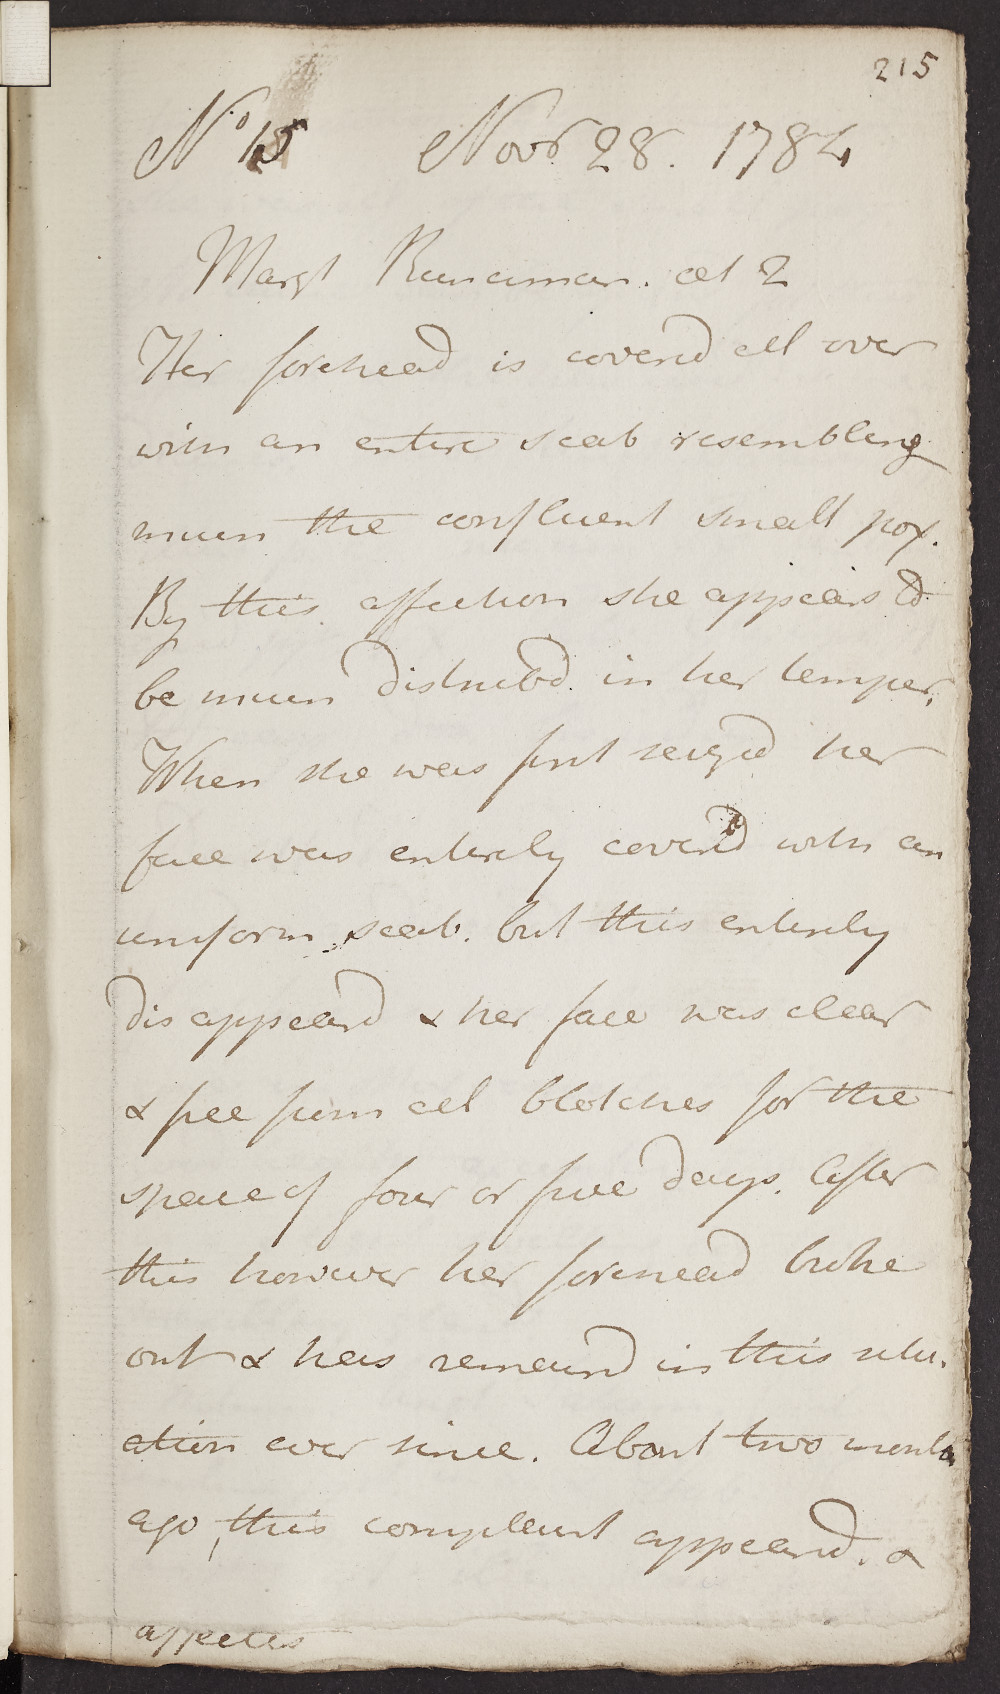 215
No 15 Novr 28. 1784
Margt Runciman. aet 2
Her forehead is coverd all over
with an entire scab resembling
much the confluent small pox.
By this affection she appears to
be much disturbd in her temper.
When she was first seizd her
face was entirely coverd with an
uniform scab. but this entirely
disappeard & her face was clear
& free from all blotches for the
space of four or five days. After
this however her forehead broke
out & has remaind in this situ-
ation ever since. About two months
ago, this complaint appeard. &